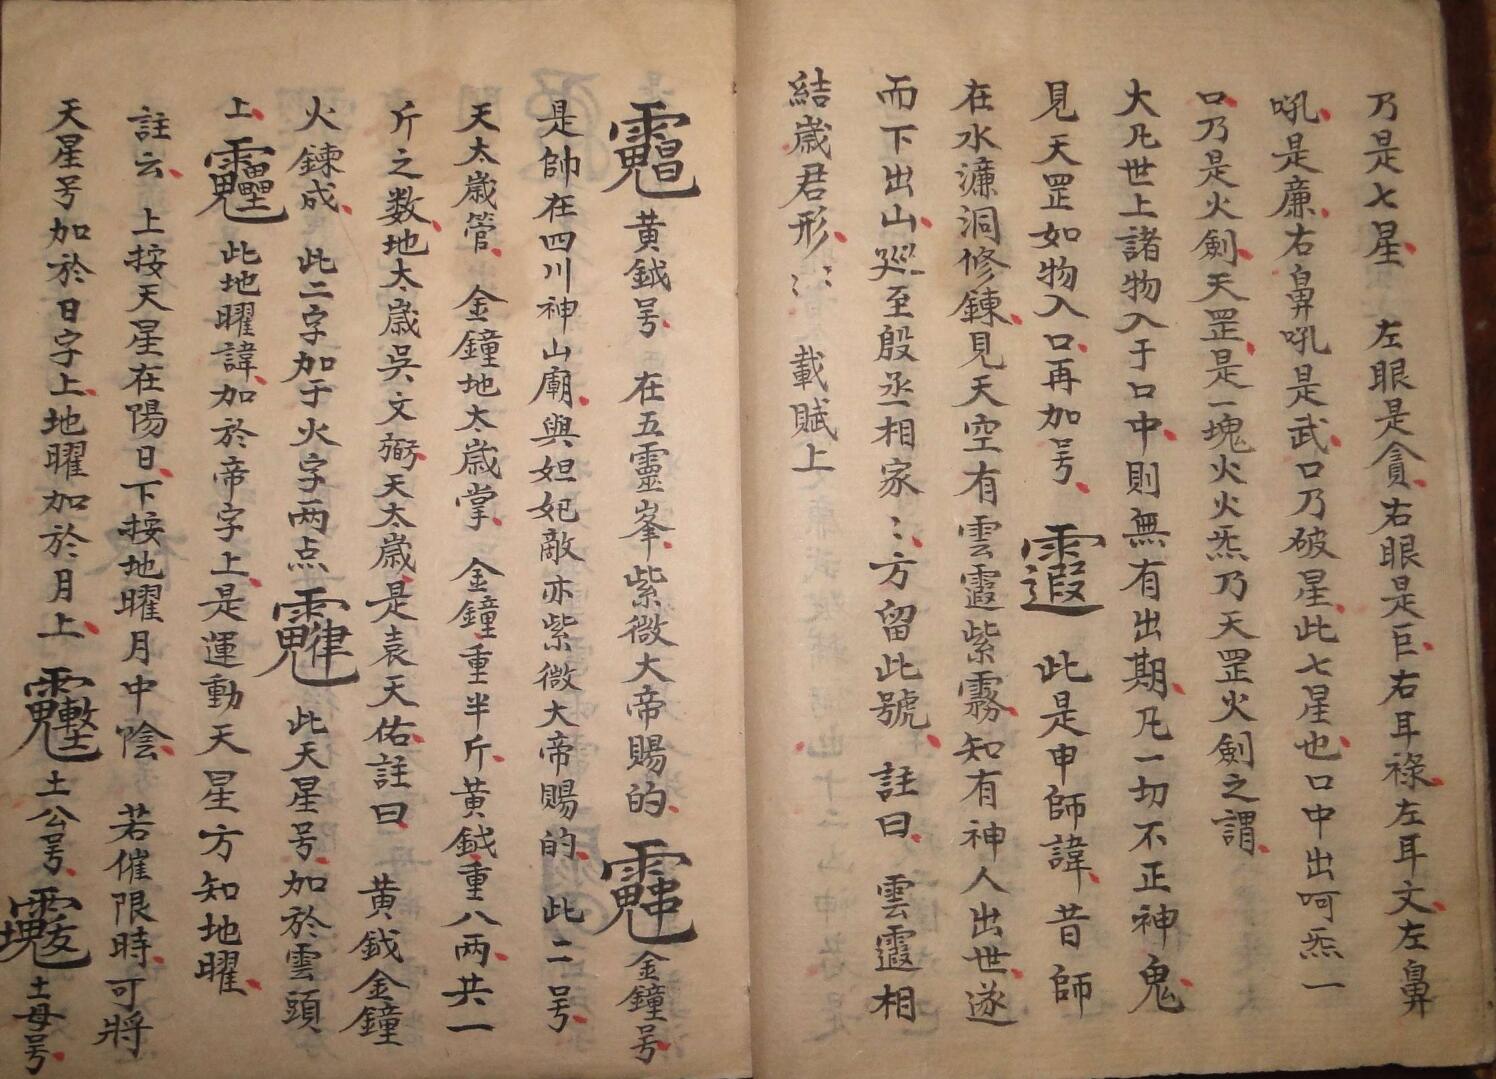 乃是七星 左眼是貪右眼是巨右耳祿左耳文左鼻
吼是廉右鼻吼是武口乃破星此七星也口中出呵炁一
口乃是火劍天罡是一塊火火炁乃天罡火劍之謂
大凡世上諸物入于口中則無有出期凡一切不正神鬼
見天罡如物入口再加号 此是申師諱昔師
在水濂洞修鍊見天空有雲霞紫霧知有神人出世遂
而下出山巡至殷丞相家〻方留此號 註曰 雲霞相
結歲君形〻 載賦上
黄鉞号 在五靈峯紫微大帝賜的 金鐘号
是帥在四川神山廟與妲妃敵亦紫微大帝賜的 此二号
天太歲管 金鐘地太歲掌 金鐘重半斤黄鉞重八两共一
斤之数地太歲吳文 天太歲是袁天佑註曰 黄鉞金鐘
火鍊成 此二字加于火字两点 此天星号加於雲頭
上 此地曜諱加於帝字上是運動天星方知地曜
註云 上按天星在陽日下按地曜月中陰 若催限時可將
天星号加於日字上地曜加於月上 土公号 土母号